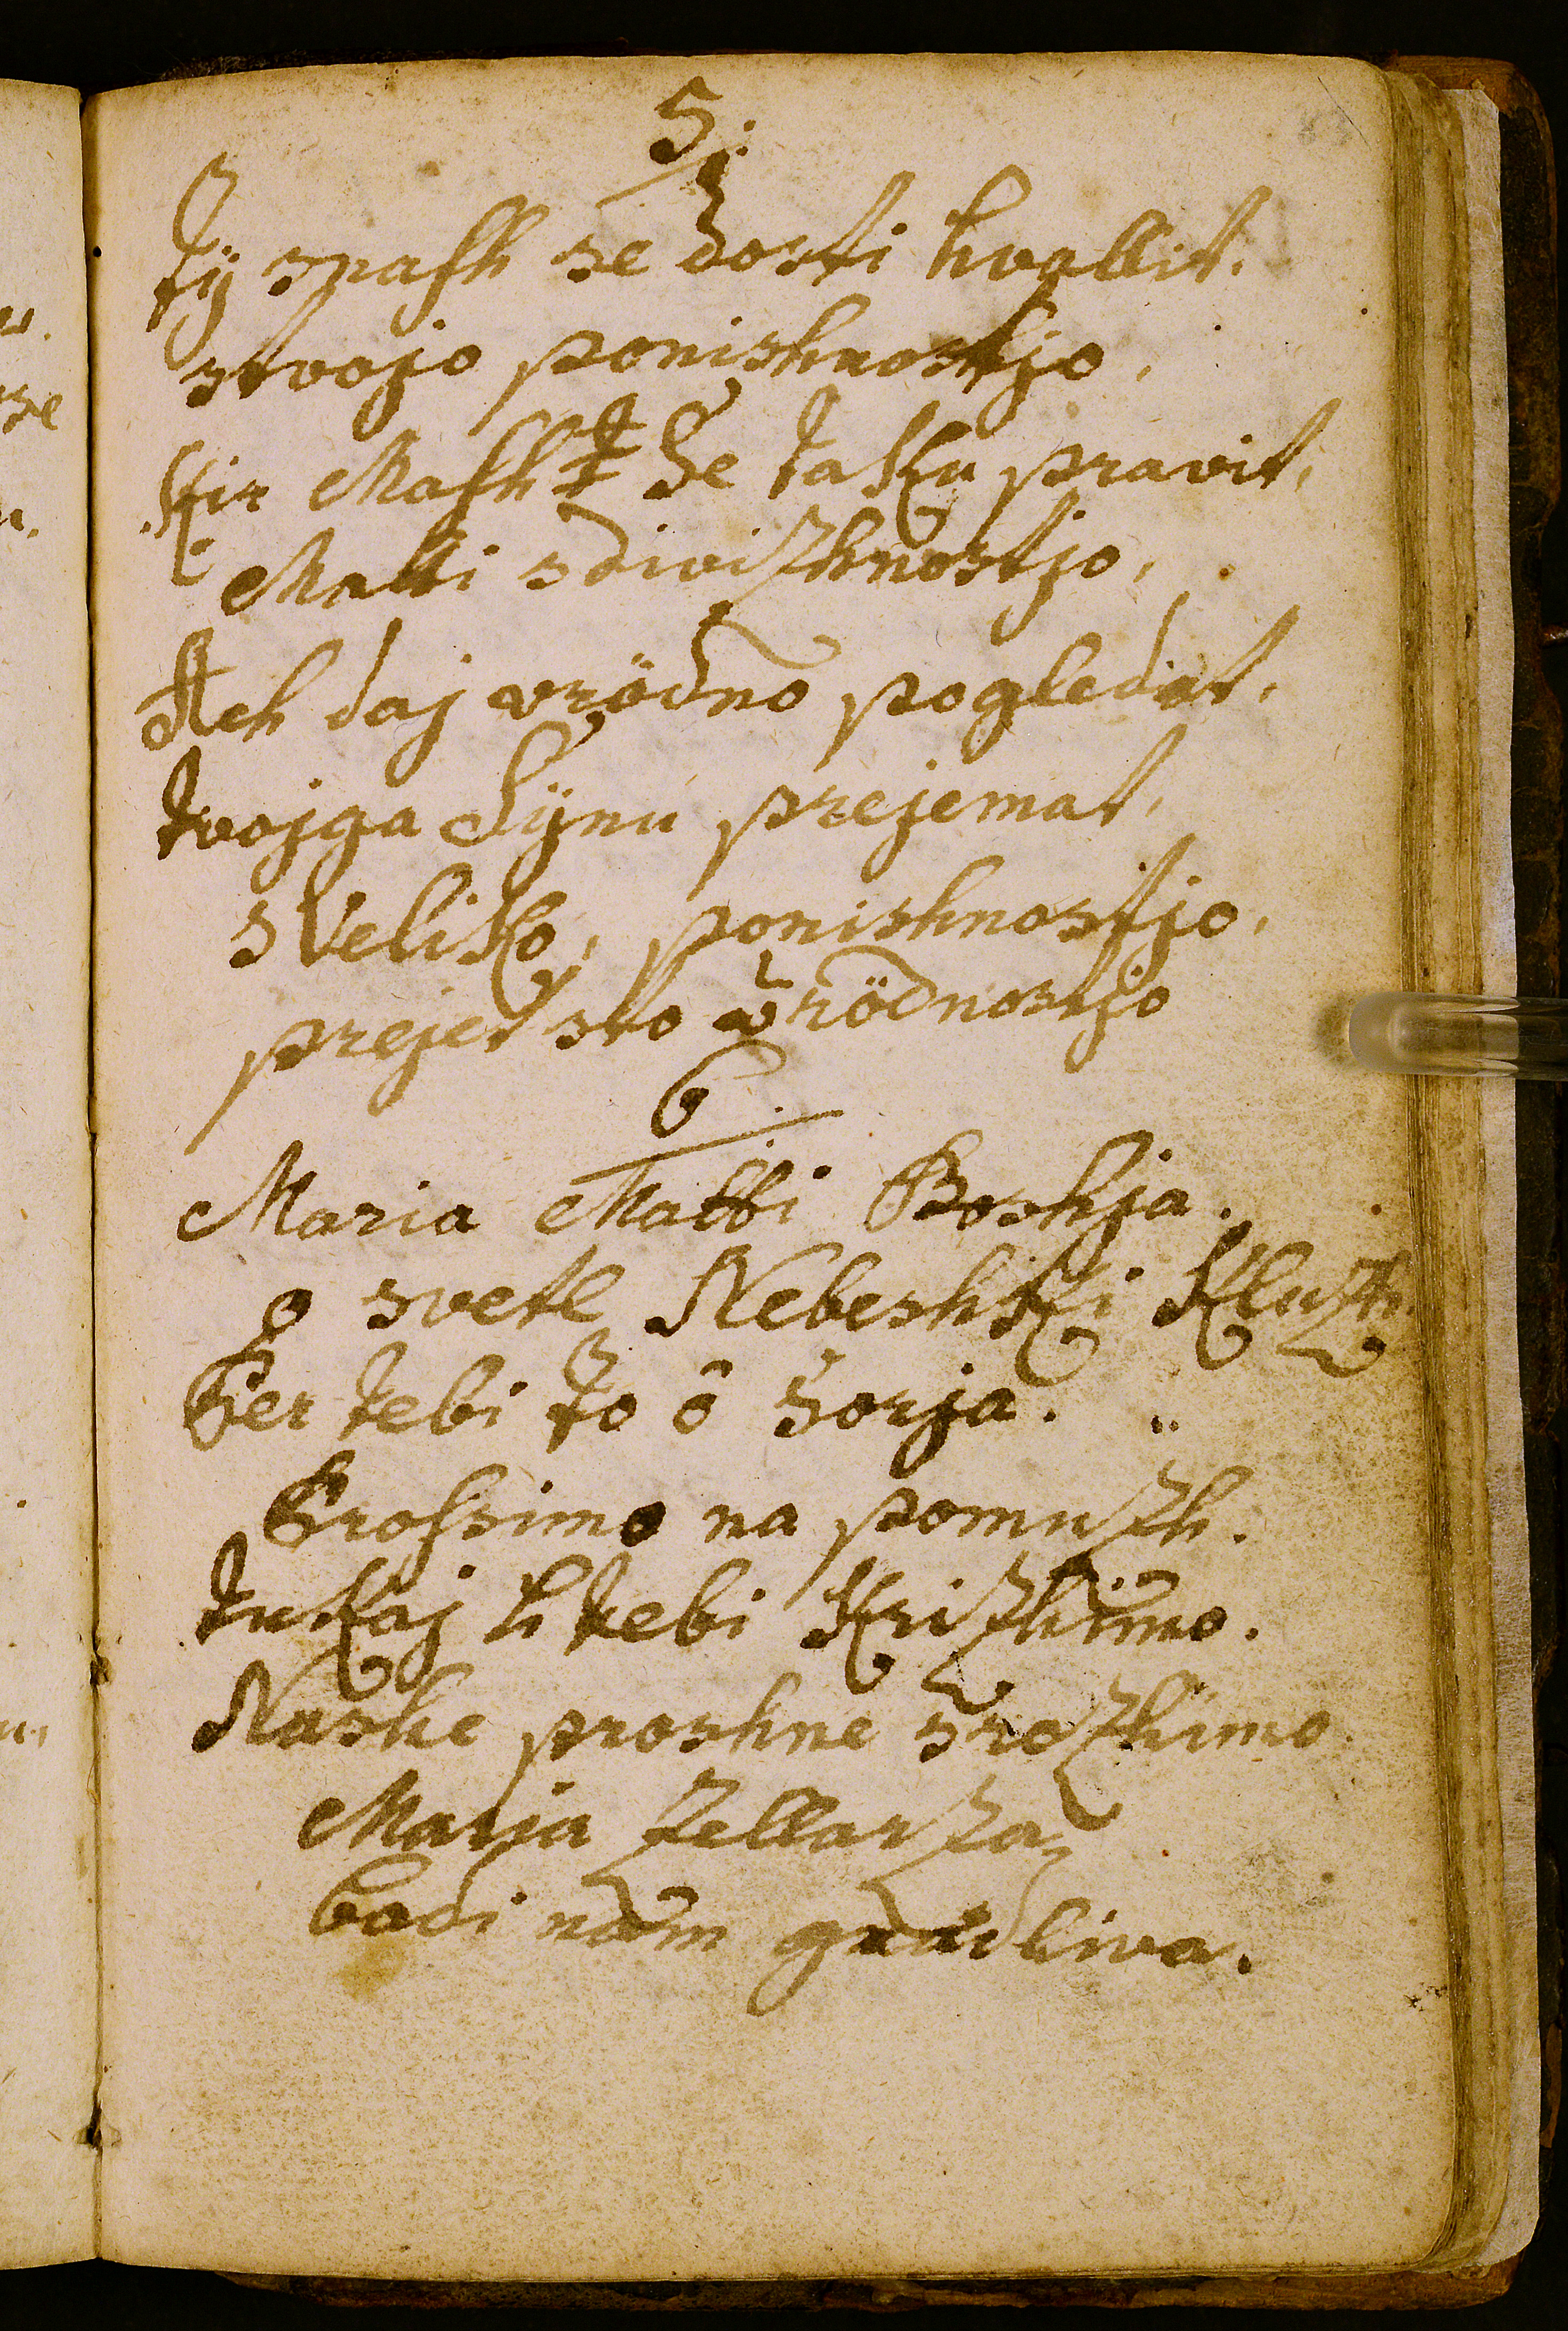 5.
Tÿ snash se dosti hvallit.
stvojo ponishnostjo,
Kir Mash se taku pravit,
Matti sdivizhnostjo,
Ach daj vrödno pogledat,
tvojga Sÿnu prejemat,
sveliko, ponishnostjo,
prejet sto vrödnostjo
6
Maria Matti Boshja.
o svetl Nebeshki Kluzh.
Per tebi to ô sorja.
Prossimo na pomuzh.
tukaj h tebi Krizhimo.
Nashe proshne srozhimo
Marja Zellarza,
bodi nam gnadliva.